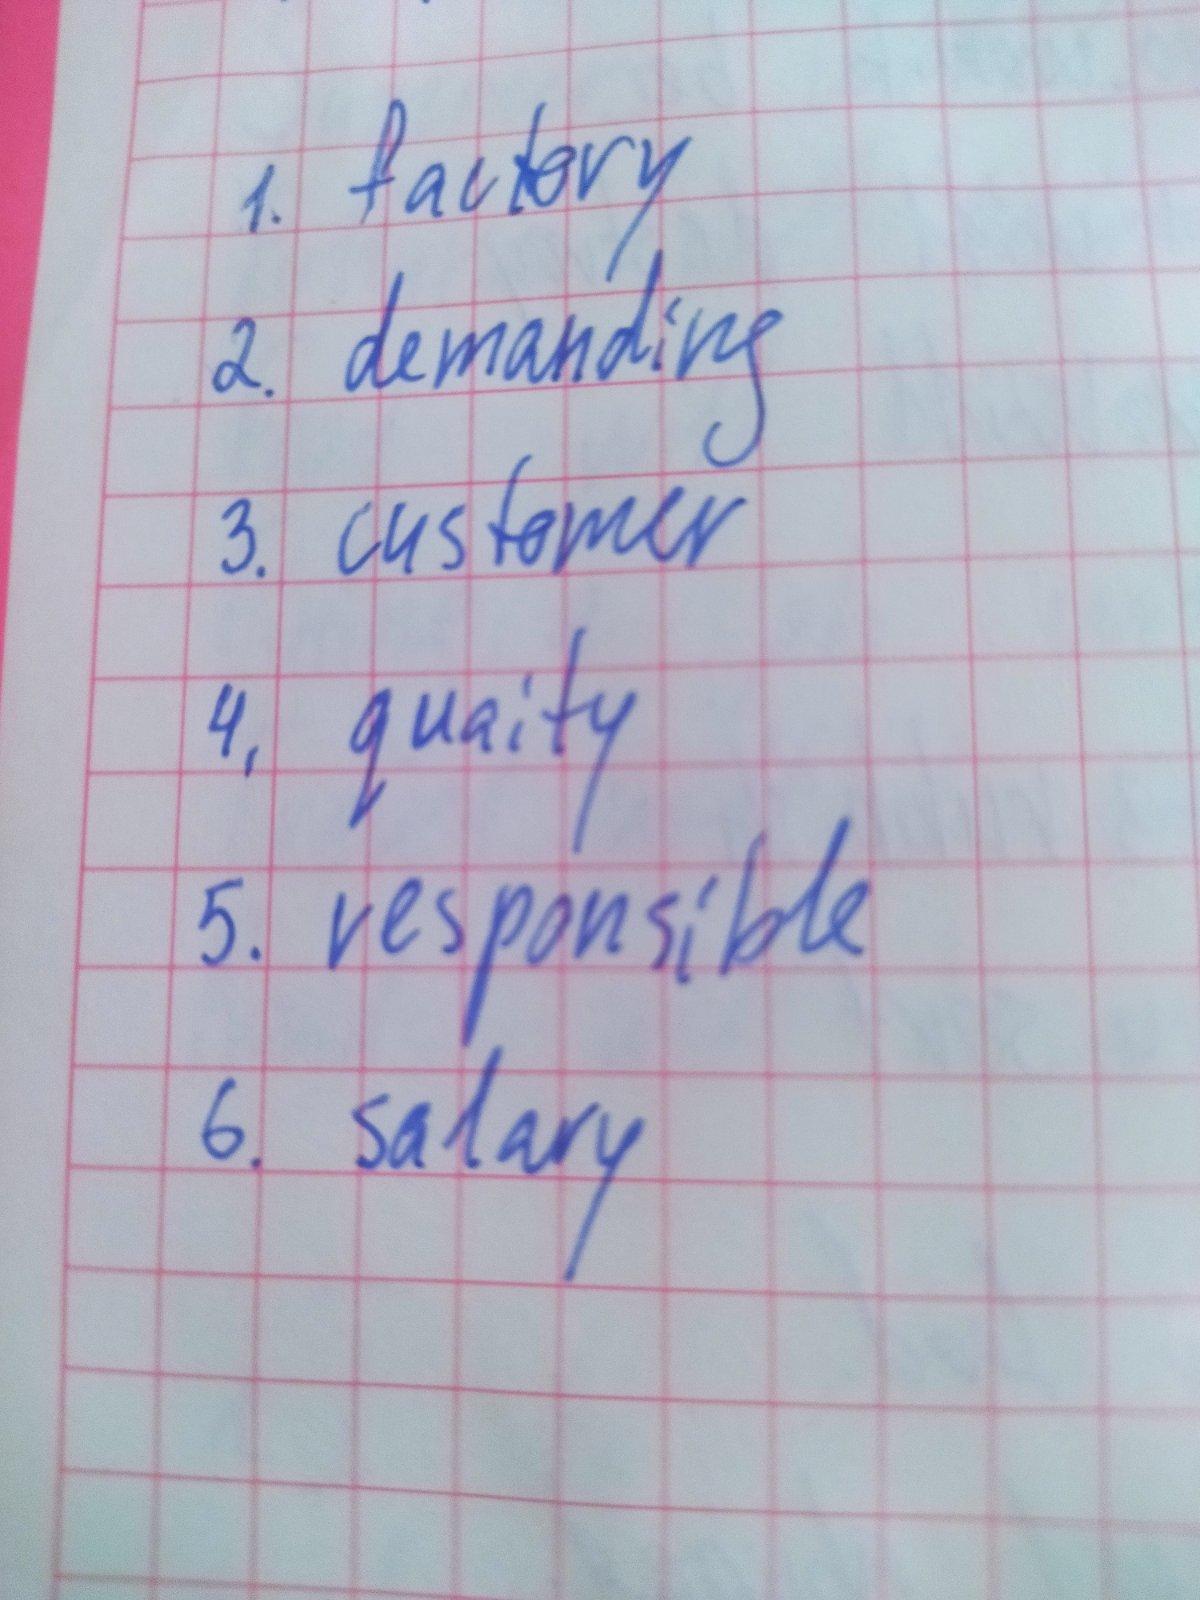 1. factory
2. demanding
3. customer
4, quaity
5. responsible
6. salary